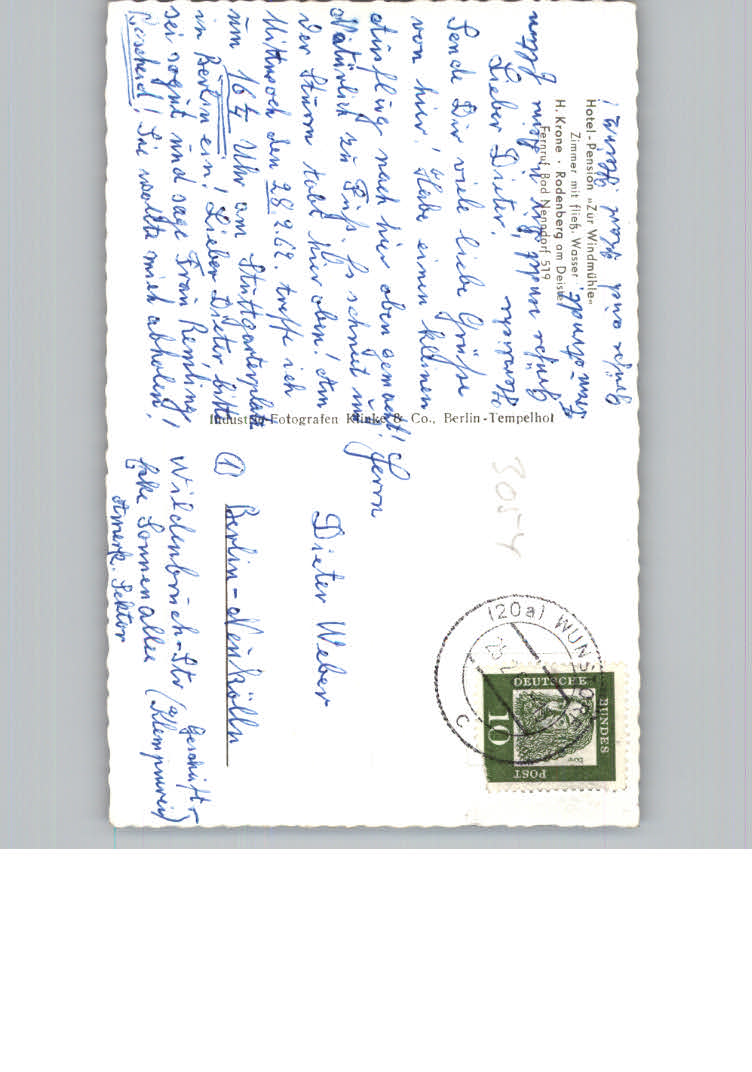 Hotel-Pension »Zur Windmühle«
Zimmer mit fließ. Wasser
H. Krone · Rodenberg am Deister
Fernruf Bad Nenndorf 519
Lieber Dieter.
Sende Dir viele liebe Grüße
von hier! Habe einen kleinen
Ausflug nach hier oben gemacht!
Natürlich zu Fuß. Es schneit und
der Sturm tobt hier oben! Am
Mittwoch den 28.2.62. treffe ich
um 16 Uhr am Stuttgarterplatz
in Berlin ein! Lieber Dieter bitte
sei so gut und sage Frau
Bescheid! Sie wollte mich abholen!
Industrie-Fotografen Klinke & Co., Berlin-Tempelhof
Herrn
Dieter Weber
(1) Berlin-Neukölln
Wildenbruch-Str
Ecke Sonnenallee
Amerk. Sektor
Geschäft
(Klempnerei)
3054
(20a) WUNSTORF
c
DEUTSCHE
BUNDES
POST
10